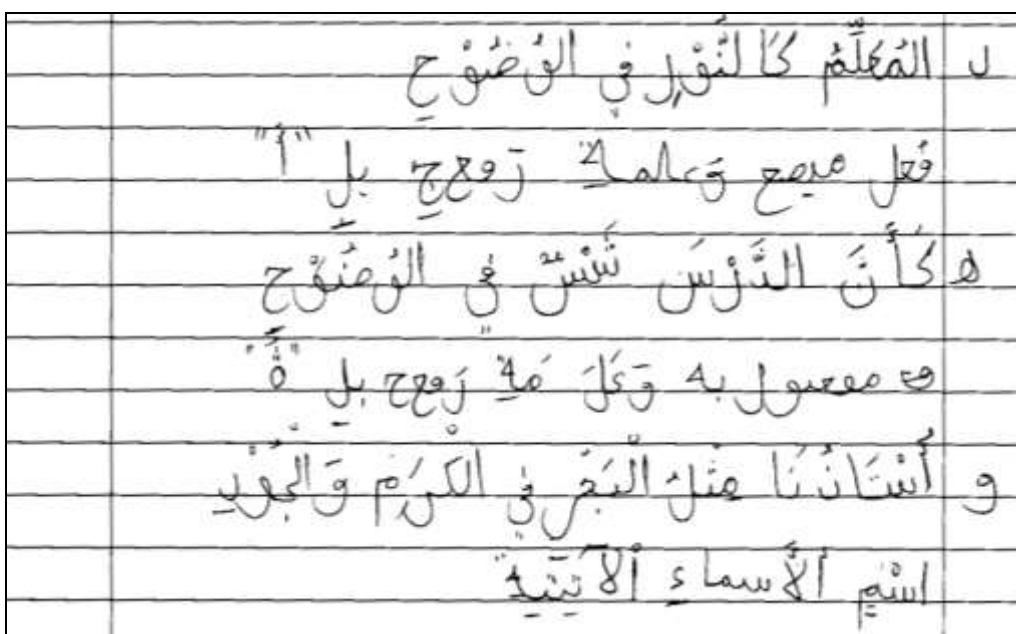 د المُعَلِّمُ كَالنُّوْرِ فِي الوُضُوْحِ
فُعل مبصح وَعلمة رَوعجِ بلِ "أ"
ه كَأَنَّ الدَّرْسَ شَمْسٌ في الوُضُوْح
مفعول به وَعَلَ مَة رَوعج بلِ "ةً"
و أُسْتَاذُنَا مِثْلُ الْبَحْرِ فِي الْكَرَمِ وَالْجُوْدِ
اسْمِ ألأَسماءِ ألآتَيَةِ